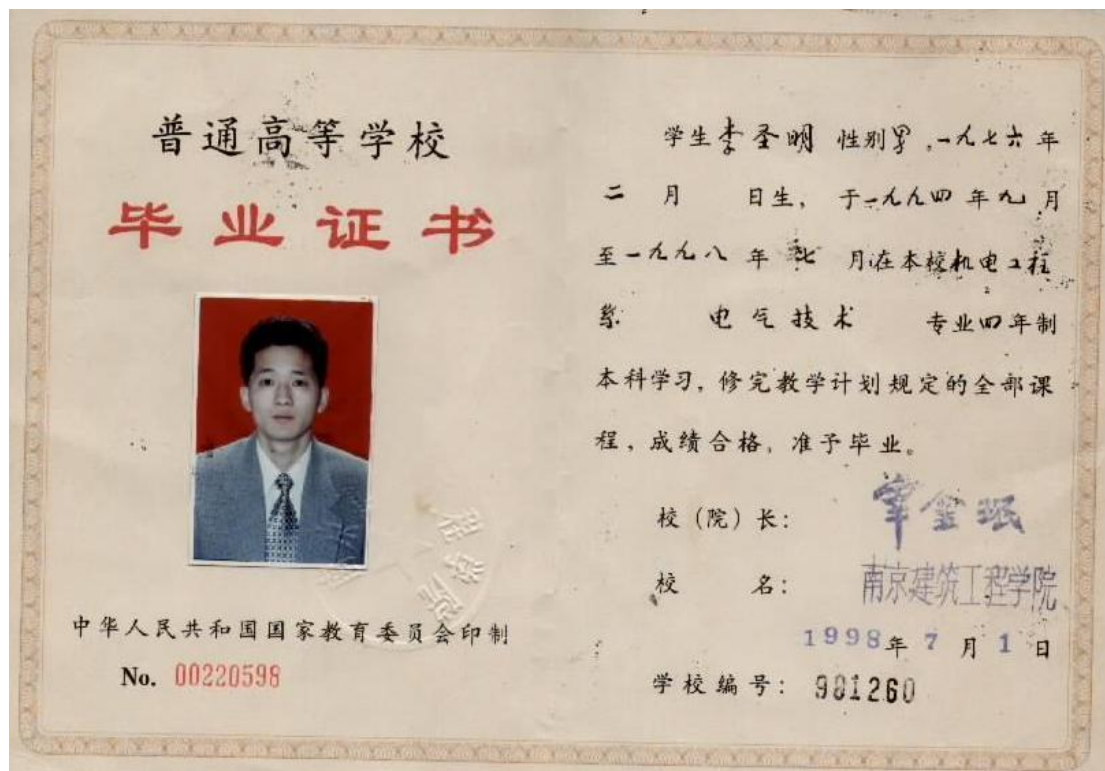 普通高等学校
毕业证书
中华人民共和国国家教育委员会印制
No. 00220598
学生李圣明 性别男，一九七六年
二 月 日生，于一九九四年九月
至一九九八年七月在本校机电工程
系 电气技术 专业四年制
本科学习，修完教学计划规定的全部课
程，成绩合格，准予毕业。
校（院）长：
校 名：南京建筑工程学院
1998年7月1日
学校编号：981260